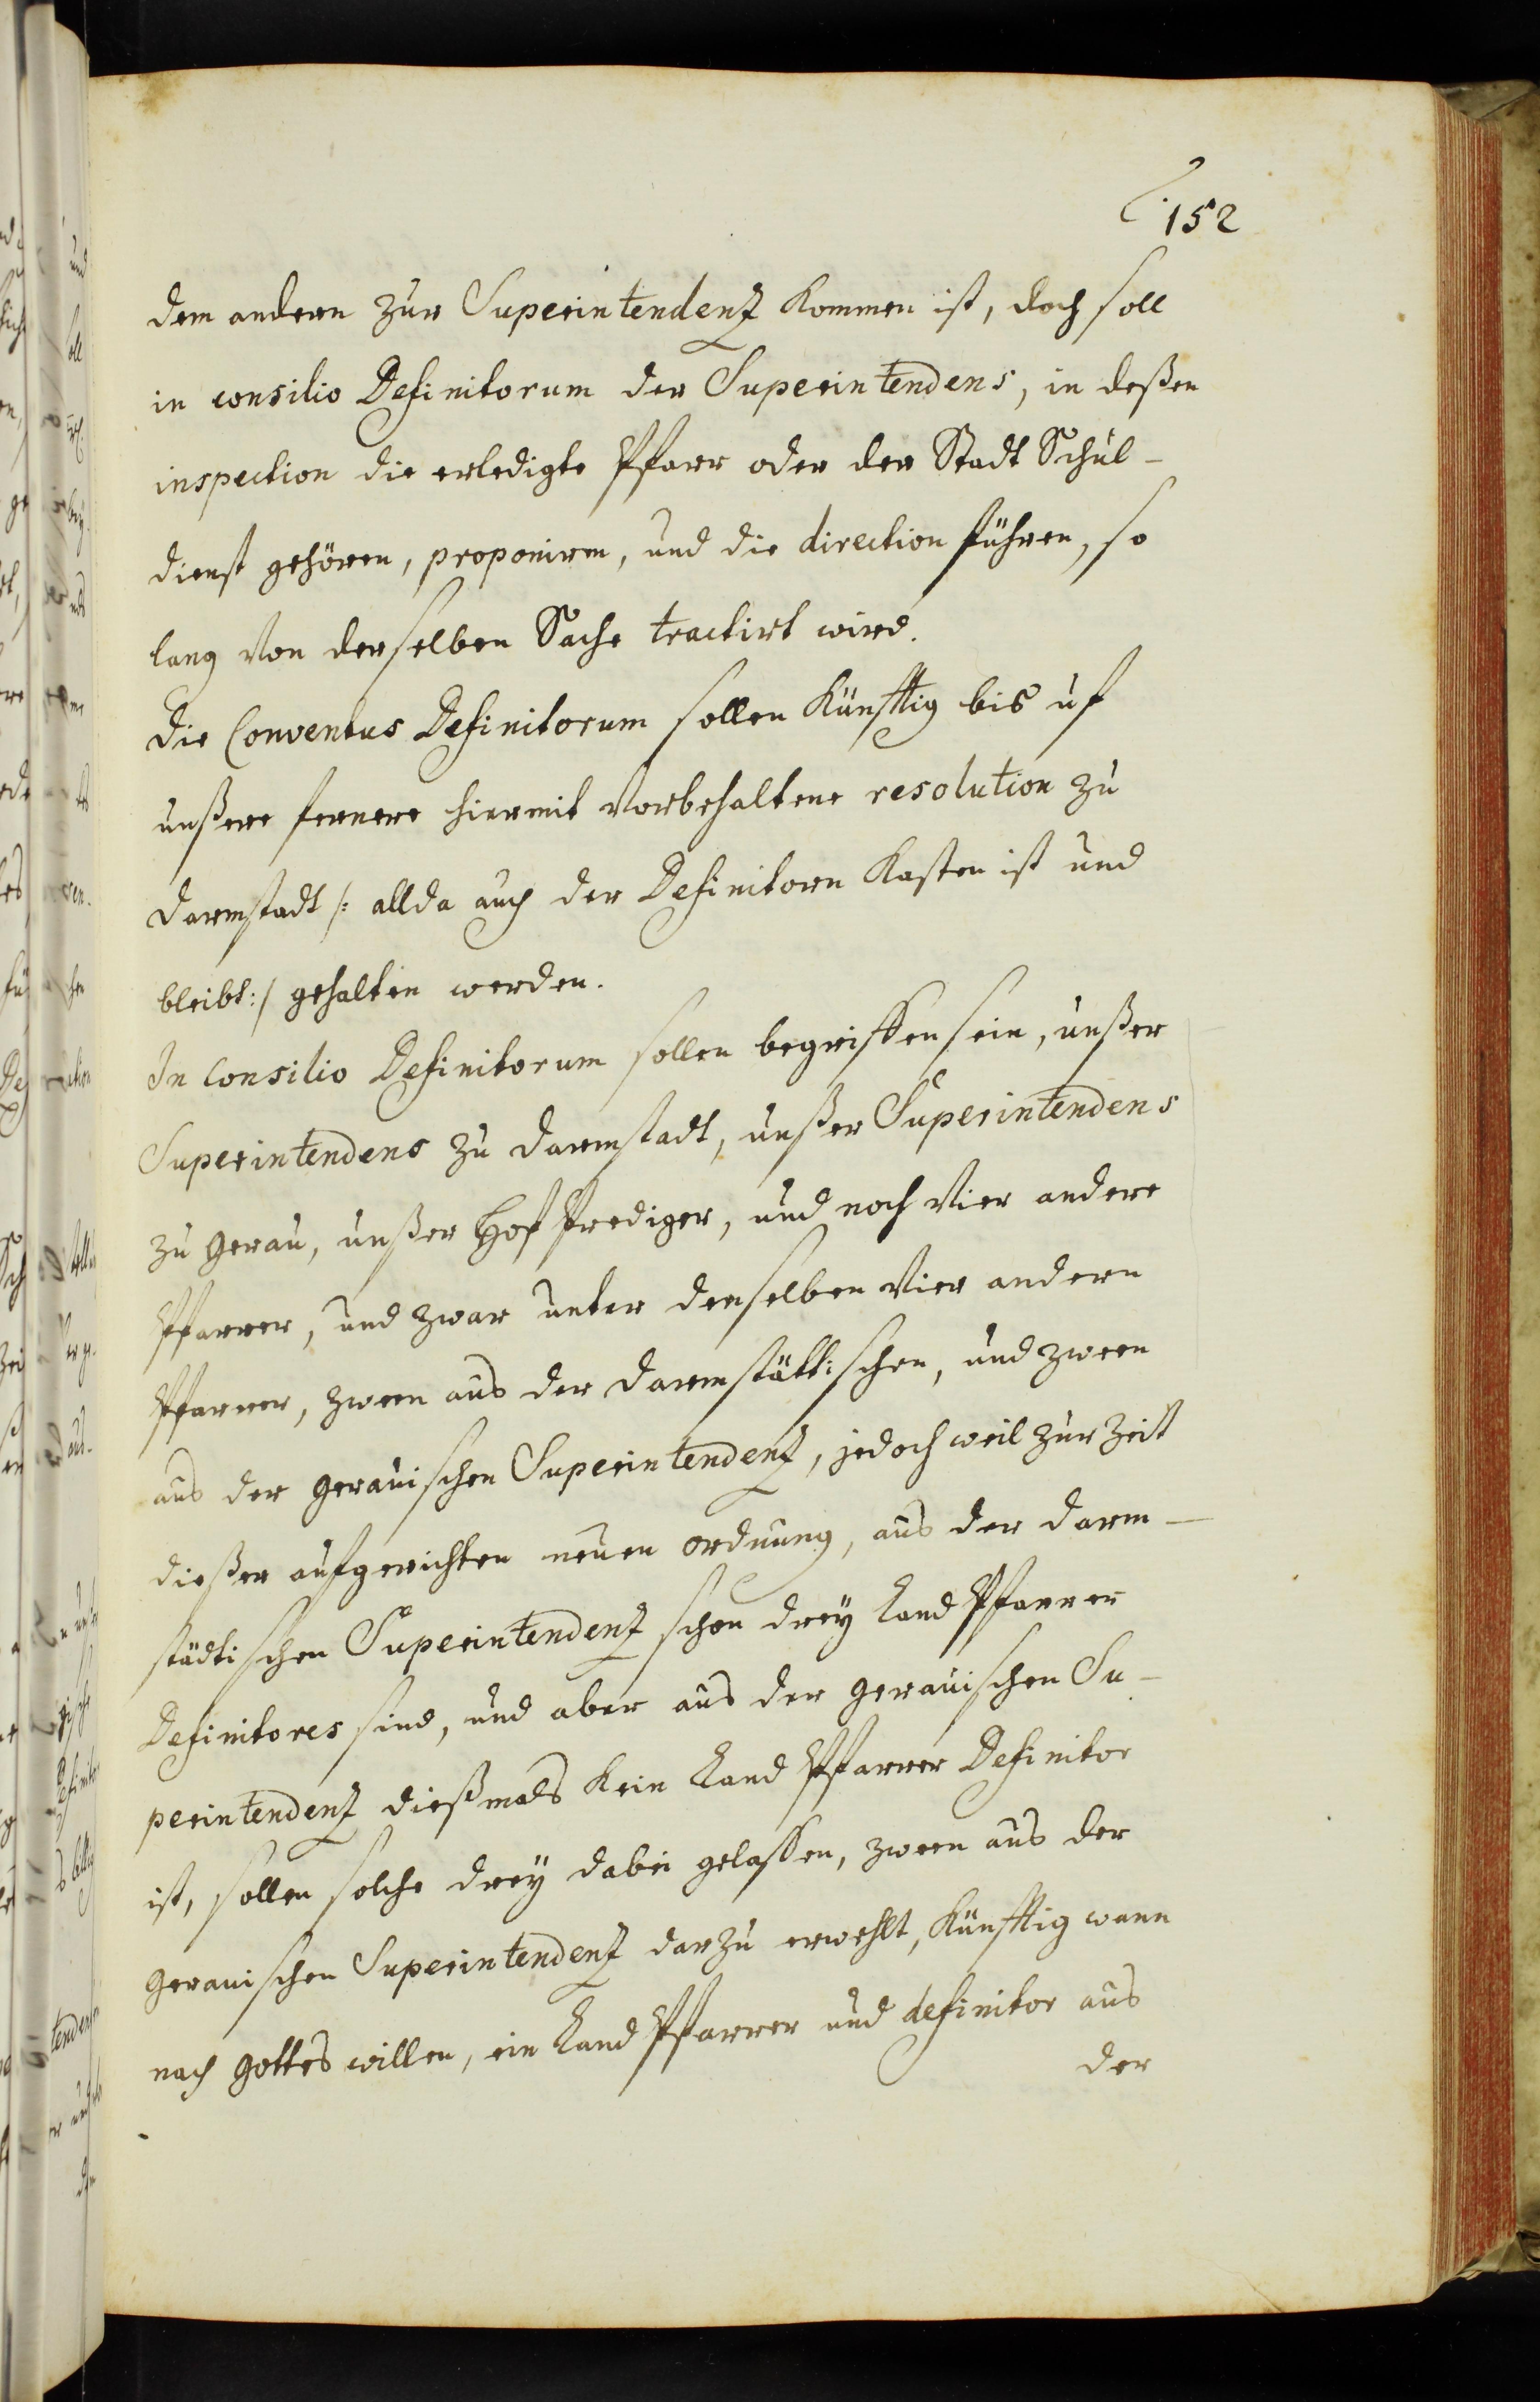 152
dem andern zur Superintendenz kommen ist, doch soll
in consilio Definitorum der Superintendens, in deßen
inspection die erledigte Pfarr oder der Stadt Schul-
dienst gehören, proponiren, und die direction führen, so
lang von derselben Sache tractirt wird.
Die Conventus Definitorum sollen künfftig bis uf
unßere fernere hiermit vorbehaltene resolution zu
Darmstadt /: allda auch der Definitorn Kasten ist und
bleibt :/ gehalten werden.
In Consilio Definitorum sollen begriffen sein, unßer
Superintendens zu Darmstadt, unßer Superintendens
zu Gerau, unßer Hof Prediger, und noch vier andere
Pfarrer, und zwar unter denselben vier andern
Pfarrer, zween aus der Darmstättischen, und zween
aus der Gerauischen Superintendenz, jedoch weil zur Zeit
dießer aufgerichten neuen ordnung, aus der Darm-
städtischen Superintendenz schon drey Land Pfarrer
Definitores sind, und aber aus der Gerauischen Su-
perintendenz dießmals kein Land Pfarrer Definitor
ist, sollen solche drey dabei gelassen, zween aus der
Gerauischen Superintendenz darzu erwehlt, künfftig wann
nach Gottes willen, ein Land Pfarrer und definitor aus
der